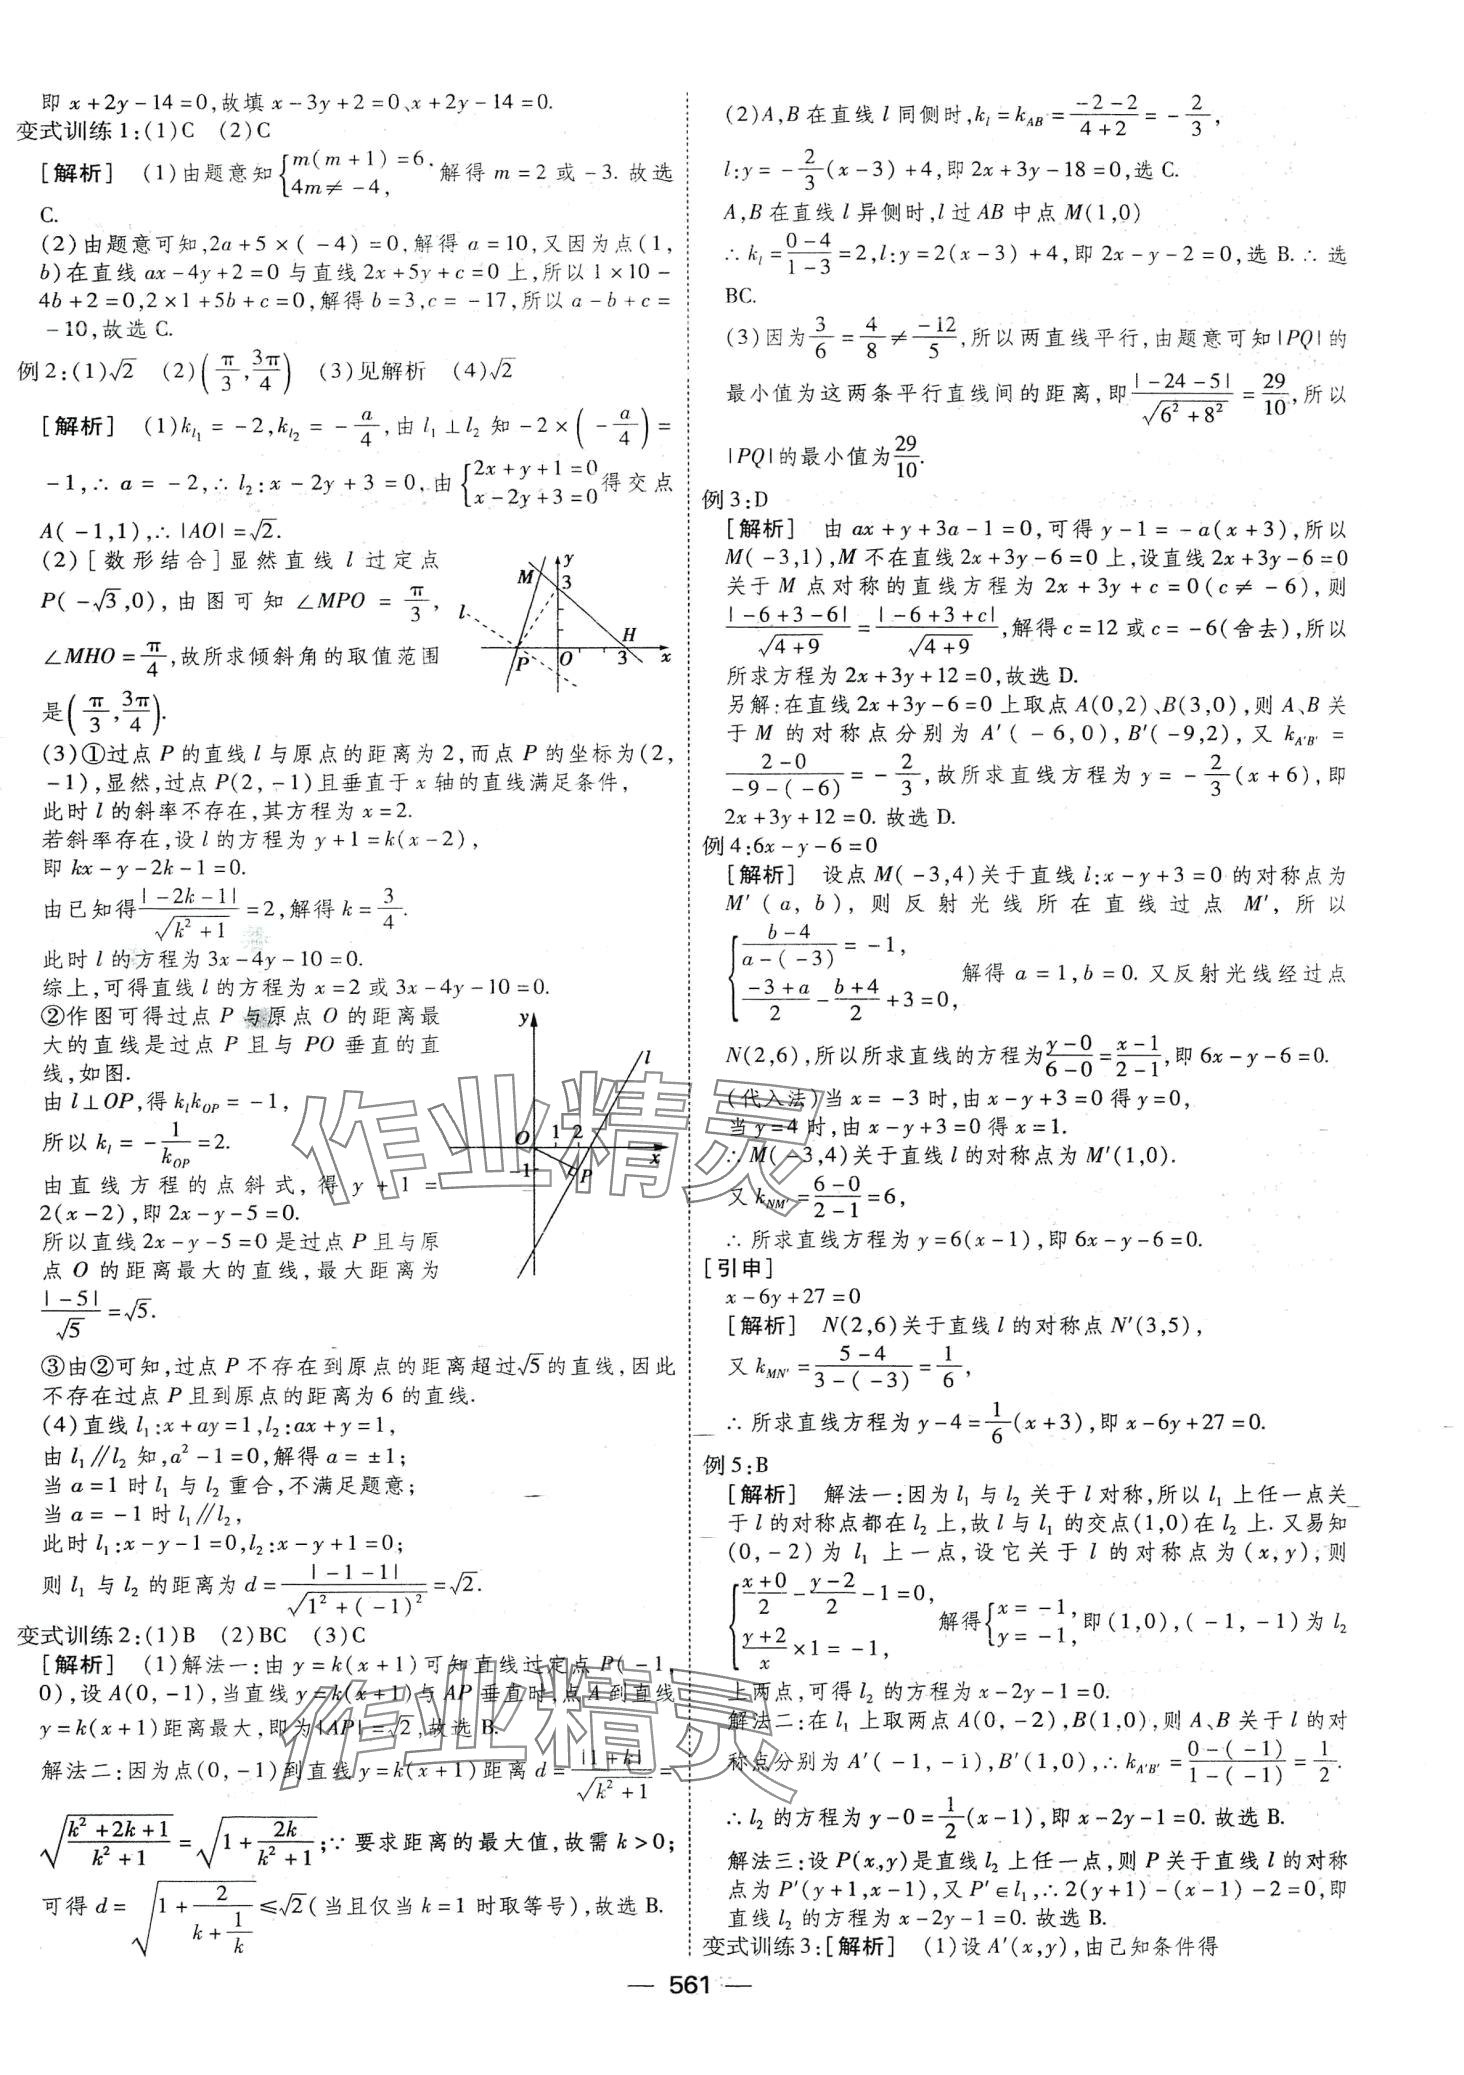 即 x+2y-14=0,故填 x-3y+2=0、x+2y-14=0.
变式训练1:(1)C (2)C
[解析] (1)由题意知{m(m+1)=6, 4m≠-4, 解得 m=2 或 -3. 故选
C.
(2)由题意可知,2a+5×(-4)=0,解得 a=10,又因为点(1,
b)在直线 ax-4y+2=0 与直线 2x+5y+c=0 上,所以 1×10-
4b+2=0,2×1+5b+c=0,解得 b=3,c=-17,所以 a-b+c=
-10,故选 C.
例2:(1)√2 (2)(π/3,3π/4) (3)见解析 (4)√2
[解析] (1)k_{l₁}=-2,k_{l₂}=-a/4,由 l₁⊥l₂ 知 -2×(-a/4)=
-1,∴a=-2,∴l₂:x-2y+3=0,由{2x+y+1=0 x-2y+3=0得交点
A(-1,1),∴|AO|=√2.
(2)[数形结合]显然直线 l 过定点
P(-√3,0),由图可知 ∠MPO=π/3,
∠MHO=π/4,故所求倾斜角的取值范围
是(π/3,3π/4).
y
M
3
l
H
P
O
3
x
(3)①过点 P 的直线 l 与原点的距离为 2,而点 P 的坐标为(2,
-1),显然,过点 P(2,-1)且垂直于 x 轴的直线满足条件,
此时 l 的斜率不存在,其方程为 x=2.
若斜率存在,设 l 的方程为 y+1=k(x-2),
即 kx-y-2k-1=0.
由已知得|-2k-1|/√(k²+1)=2,解得 k=3/4.
此时 l 的方程为 3x-4y-10=0.
综上,可得直线 l 的方程为 x=2 或 3x-4y-10=0.
②作图可得过点 P 与原点 O 的距离最
大的直线是过点 P 且与 PO 垂直的直
线,如图.
由 l⊥OP,得 k_l k_{OP}=-1,
所以 k_l=-1/k_{OP}=2.
由直线方程的点斜式,得 y+1=
2(x-2),即 2x-y-5=0.
所以直线 2x-y-5=0 是过点 P 且与原
点 O 的距离最大的直线,最大距离为
|-5|/√5=√5.
y
l
O
1
2
x
-1
P
③由②可知,过点 P 不存在到原点的距离超过√5的直线,因此
不存在过点 P 且到原点的距离为 6 的直线.
(4)直线 l₁:x+ay=1,l₂:ax+y=1,
由 l₁∥l₂ 知,a²-1=0,解得 a=±1;
当 a=1 时 l₁ 与 l₂ 重合,不满足题意;
当 a=-1 时 l₁∥l₂,
此时 l₁:x-y-1=0,l₂:x-y+1=0;
则 l₁ 与 l₂ 的距离为 d=|-1-1|/√(1²+(-1)²)=√2.
变式训练2:(1)B (2)BC (3)C
[解析] (1)解法一:由 y=k(x+1)可知直线过定点 P(-1,
0),设 A(0,-1),当直线 y=k(x+1)与 AP 垂直时,点 A 到直线
y=k(x+1)距离最大,即为|AP|=√2,故选 B.
解法二:因为点(0,-1)到直线 y=k(x+1)距离 d=|1+k|/√(k²+1)=
√((k²+2k+1)/(k²+1))=√(1+2k/(k²+1));∵要求距离的最大值,故需 k>0;
可得 d=√(1+2/(k+1/k))≤√2(当且仅当 k=1 时取等号),故选 B.
(2)A,B 在直线 l 同侧时,k_l=k_{AB}=(-2-2)/(4+2)=-2/3,
l:y=-2/3(x-3)+4,即 2x+3y-18=0,选 C.
A,B 在直线 l 异侧时,l 过 AB 中点 M(1,0)
∴k_l=(0-4)/(1-3)=2,l:y=2(x-3)+4,即 2x-y-2=0,选 B.∴选
BC.
(3)因为3/6=4/8≠-12/5,所以两直线平行,由题意可知|PQ|的
最小值为这两条平行直线间的距离,即|-24-5|/√(6²+8²)=29/10,所以
|PQ|的最小值为29/10.
例3:D
[解析] 由 ax+y+3a-1=0,可得 y-1=-a(x+3),所以
M(-3,1),M 不在直线 2x+3y-6=0 上,设直线 2x+3y-6=0
关于 M 点对称的直线方程为 2x+3y+c=0(c≠-6),则
|-6+3-6|/√(4+9)=|-6+3+c|/√(4+9),解得 c=12 或 c=-6(舍去),所以
所求方程为 2x+3y+12=0,故选 D.
另解:在直线 2x+3y-6=0 上取点 A(0,2)、B(3,0),则 A、B 关
于 M 的对称点分别为 A'(-6,0),B'(-9,2),又 k_{A'B'}=
(2-0)/(-9-(-6))=-2/3,故所求直线方程为 y=-2/3(x+6),即
2x+3y+12=0. 故选 D.
例4:6x-y-6=0
[解析] 设点 M(-3,4)关于直线 l:x-y+3=0 的对称点为
M'(a,b),则反射光线所在直线过点 M',所以
{(b-4)/(a-(-3))=-1, (-3+a)/2-(b+4)/2+3=0, 解得 a=1,b=0. 又反射光线经过点
N(2,6),所以所求直线的方程为(y-0)/(6-0)=(x-1)/(2-1),即 6x-y-6=0.
(代入法)当 x=-3 时,由 x-y+3=0 得 y=0,
当 y=4 时,由 x-y+3=0 得 x=1.
∴M(-3,4)关于直线 l 的对称点为 M'(1,0).
又 k_{NM'}=(6-0)/(2-1)=6,
∴所求直线方程为 y=6(x-1),即 6x-y-6=0.
[引申]
x-6y+27=0
[解析] N(2,6)关于直线 l 的对称点 N'(3,5),
又 k_{MN'}=(5-4)/(3-(-3))=1/6,
∴所求直线方程为 y-4=1/6(x+3),即 x-6y+27=0.
例5:B
[解析] 解法一:因为 l₁ 与 l₂ 关于 l 对称,所以 l₁ 上任一点关
于 l 的对称点都在 l₂ 上,故 l 与 l₁ 的交点(1,0)在 l₂ 上. 又易知
(0,-2)为 l₁ 上一点,设它关于 l 的对称点为(x,y),则
{(x+0)/2-(y-2)/2-1=0, (y+2)/x×1=-1, 解得{x=-1, y=-1, 即(1,0),(-1,-1)为 l₂
上两点,可得 l₂ 的方程为 x-2y-1=0.
解法二:在 l₁ 上取两点 A(0,-2),B(1,0),则 A、B 关于 l 的对
称点分别为 A'(-1,-1),B'(1,0),∴k_{A'B'}=(0-(-1))/(1-(-1))=1/2.
∴l₂ 的方程为 y-0=1/2(x-1),即 x-2y-1=0. 故选 B.
解法三:设 P(x,y)是直线 l₂ 上任一点,则 P 关于直线 l 的对称
点为 P'(y+1,x-1),又 P'∈l₁,∴2(y+1)-(x-1)-2=0,即
直线 l₂ 的方程为 x-2y-1=0. 故选 B.
变式训练3:[解析] (1)设 A'(x,y),由已知条件得
— 561 —
作业精灵
作业精灵